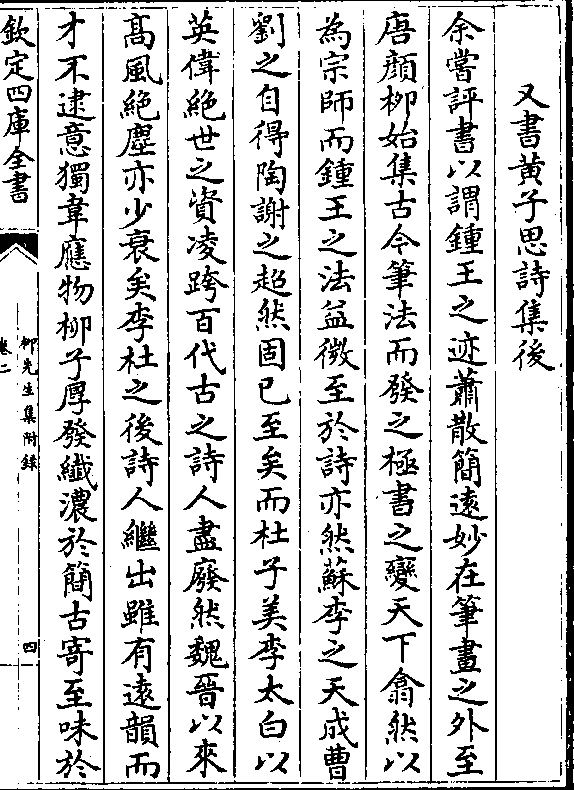 又書黄子思詩集後
余嘗評書以謂鍾王之迹蕭散簡逺妙在筆畫之外至
唐顔栁始集古今筆法而發之極書之變天下翕然以
為宗師而鍾王之法益微至於詩亦然蘇李之天成曹
劉之自得陶謝之超然固已至矣而杜子美李太白以
英偉絶世之資凌跨百代古之詩人盡廢然魏晉以來
髙風絶塵亦少衰矣李杜之後詩人繼出雖有逺韻而
才不逮意獨韋應物栁子厚發纖濃於簡古寄至味於
欽定四庫全書
栁先生集附錄
卷二
四